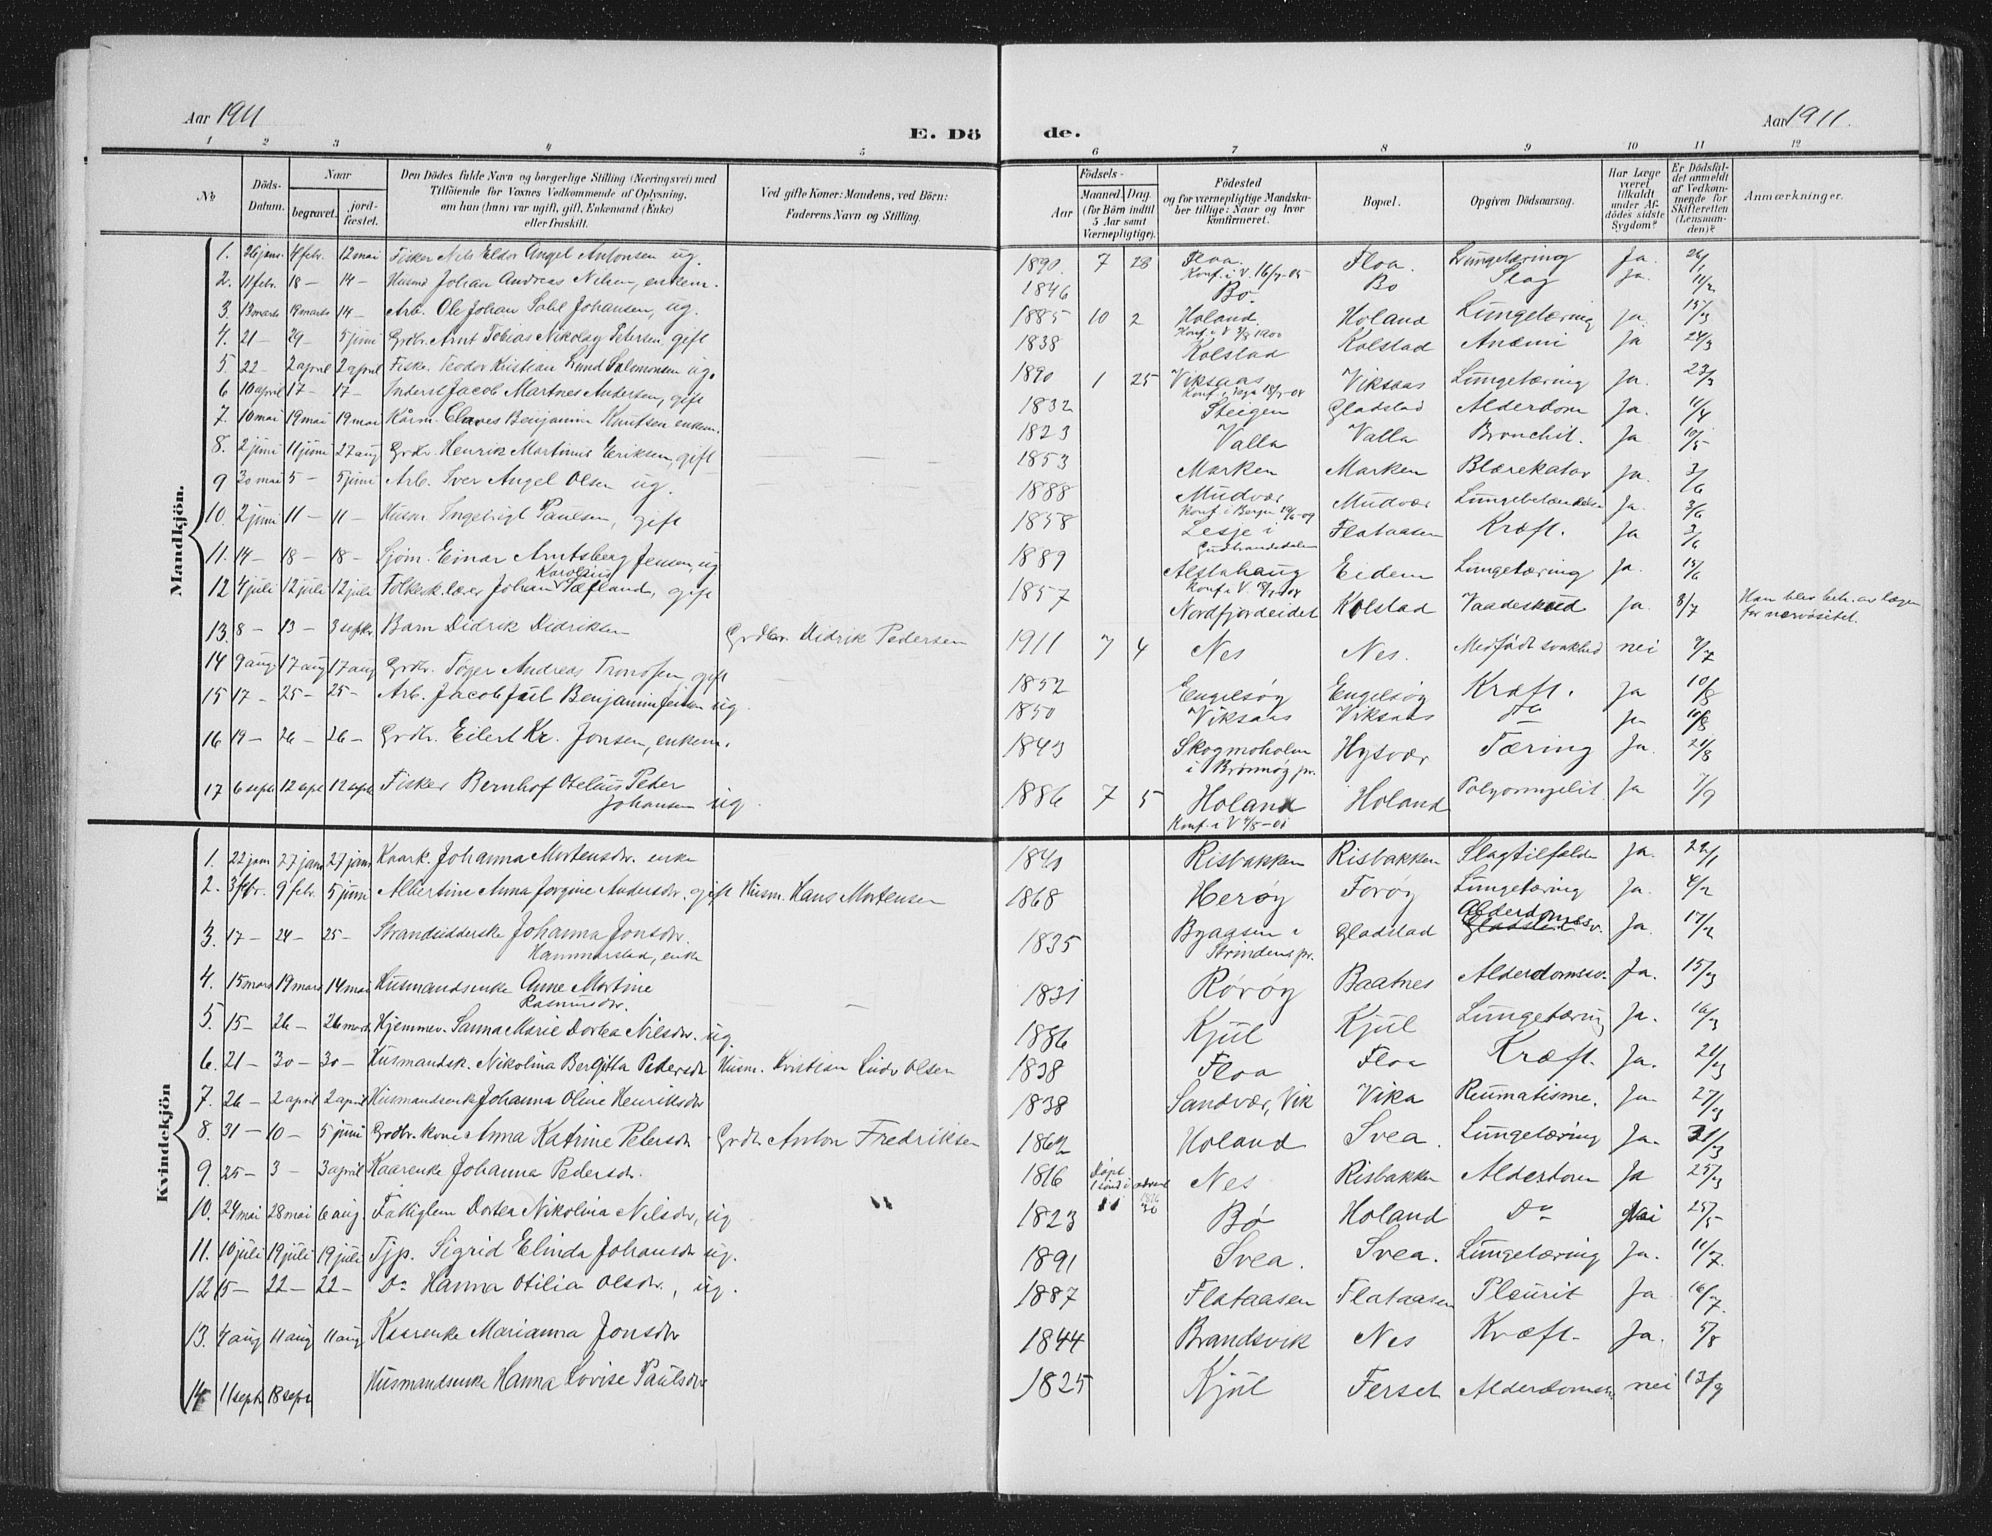 Aar 1911
E. Dö de.
Aar 1911.
1 2 3 4 5 6 7 8 9 10 11 12
No
Döds-Datum.
Naar
begravet.
jord-fæstet.
Den Dödes fulde Navn og borgerlige Stilling (Næringsvei) med
Tilföiende for Voxnes Vedkommende af Oplysning,
om han (hun) var ugift, gift, Enkemand (Enke)
eller fraskilt.
Ved gifte Koner: Mandens, ved Börn:
Faderens Navn og Stilling.
Födsels-
Aar
Maaned Dag.
(for Börn indtil
5 Aar samt
Værnepligtige).
Födested
og for værnepligtige Mandskaber tillige: Naar og hvor
konfirmeret.
Bopæl.
Opgiven Dödsaarsag.
Har Læge
været
tilkaldt
under Afdödes sidste
Sygdom?
Er Dödsfaldet anmeldt
af Vedkommende for
Skifteretten
(Lensmanden)?
Anmærkninger.
Mandkjön.
1. 26 jan. 4 febr. 12 mai Fisker Nils Eldor Angel Antonsen ug. 1890 7 28 Floa. Konf. i V. Floa. Lungetæring Ja. 26/1
2. 11 febr. 18 — 14 — Husmd Johan Andreas Nilsen, enkem. 1846 Bø. Bø Slag Ja. 11/2
3. 13 marts 19 marts 14 — Arb. Ole Johan Johansen, ug. 1885 10 2 Holand. Konf. i V 1900 Holand Lungetæring ja. 15/3
4. 21 — 29 — 5 juni Grdbr. Arnt Tobias Nikolay Petersen, gift 1838 Kolstad Kolstad Anæmi Ja 24/3
5. 22 — 2 april 2 april Fisk. Teodor Kristian Lund Salomonsen ug. 1890 1 25 Viksaas Viksaas Lungetæring Ja. 23/3
6 10 april 17 — 17 — Inderst Jacob Martnes Andersen, gift 1832 Steigen Gladstad Alderdom Ja. 11/4
7. 10 mai 19 mai 19 mai Kårm. Benjamin Knutsen enkem. 1823 Valla Valla Bronchit. Ja 10/5
8. 2 juni 11 juni 27 aug Grdbr. Henrik Martinus Eriksen, gift 1853 Marken Marken Blærekatar Ja. 3/6
9 30 mai 5 — 5 juni Arb. Iver Angel Olsen ug. 1888 Mudvær Konf. i Bergen Mudvær Lungebetændelse Ja. 3/6
10. 2 juni 11 — 11 — Husm. Ingebrigt Paulsen, gift 1858 Lesje i Gudbrandsdalen Flataasen Kræft. Ja 3/6
11. 14 — 18 — 18 — Sjöm. Einar Arntsberg Jensen, ug 1889 Alstahaug Konf. i V. Eidem Lungetæring Ja. 15/6
12 4 juli 12 juli 12 juli Folkesk.lærer Johan Karolius Tæfland, gift 1857 Nordfjordeidet Kolstad Vaadeskud Ja. 8/7 Han blev beh. av lægen for nervøsitet.
13. 8 — 13 — 3 septbr. Barn Didrik Didriksen Grdbr. Didrik Pedersen 1911 7 4 Nes Nes. Medfödt svakhed nei 9/7
14 9 aug. 17 aug 17 aug Grdbr. Töger Andreas Tronssen, gift 1852 Engelsøy Engelsøy Kræft. Ja 10/8
15 17 — 25 — 25 — Arb. Jacob Juel Benjaminsen ug. 1850 Viksaas Viksaas Do Ja
16 19 — 26 — 26 — Grdbr. Eilert Kr. Jonsen, enkem. 1843 Skogmoholm i Brønnøy pr. Hysvær Tæring Ja. 21/8
17 6 sept 12 sept 12 sept Fisker Bernhof Otelius Peter Johansen ug. 1886 7 5 Holand Konf. i V Holand Polyomyelit. Ja 7/9
Kvindekjön
1. 22 jan 27 jan 27 jan Kaark. Johanna Mortensdr. enke 1840 Risbakken Risbakken Slagtilfælde Ja. 22/1
2. 3 febr. 9 febr. 5 juni Albertine Anna Jorgine Andersdr. gift Husm. Hans Mortensen 1868 Herøy Forøy Lungetæring Ja. 4/2
3. 17 — 24 — 25 — Strandsidderske Johanna Jonsdr. Hammarstad, enke 1835 Byaasen i Strindens pr. Gladstad Alderdomssv. Ja. 17/2
4. 15 mars 19 mars 14 mai Husmandsenke Anne Martine Rasmusdr. 1831 Rørøy Baatnes Alderdomssv. Ja. 15/3
5. 15 — 26 — 26 marts Hjemmev. Sanna Marie Dortea Nilsdr. ug. 1886 Kjul Kjul Lungetæring Ja. 16/3
6. 21 — 30 — 30 — Husmandsk. Nikolina Bergitta Petersdr Husm. Kristian Ludv Olsen 1838 Floa Floa Kræft. Ja. 21/3
7. 26 — 2 april 2 april Husmandsenke Johanna Oline Henriksdr 1838 Sandvær, Vik Vika Reumatisme. Ja. 27/3
8. 31 — 10 — 5 juni Grdbr. kone Anna Katrine Petersdr Grdb. Anton Fredriksen 1862 Holand Svea. Lungetæring Ja. 31/3
9. 25 — 3 — 3 april Kaarenke Johanna Pedersdr. 1816 Døpt 1 sönd. i advent 1816 Nes Risbakken Alderdom Ja 25/3
10. 24 mai 28 mai 6 aug. Fattiglem Dortea Nikolina Nilsdr, ug 1823 11 30 Bø Holand Do Nei 25/5
11. 10 juli 19 juli 19 juli Tjp. Sigrid Elinda Johansdr ug. 1891 Svea. Svea. Lungetæring Ja. 11/7
12 15 — 22 — 22 — Do Hanna Otilia Olsdr., ug. 1887 Flataasen Flataasen Pleurit Ja 16/7.
13. 4 aug 11 aug 11 aug Kaarenke Marianna Jonsdr 1844 Brandsvik Nes Kræft. Ja. 5/8
14 11 septr 18 septr Husmandsenke Hanna Lovise Paulsdr 1825 Kjul Ferset Alderdoms nei 13/9